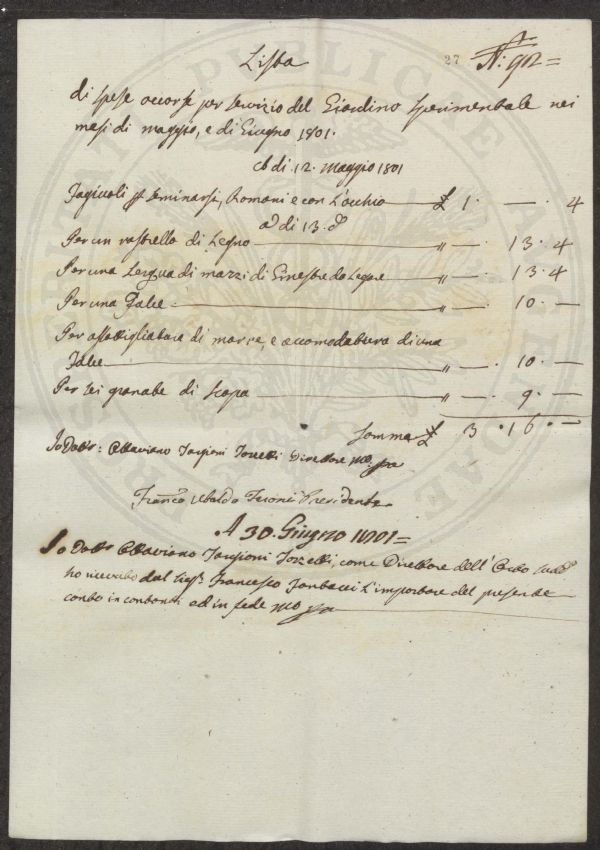 Lista
27 N: 912=
di spese occorse per servizio del Giardino Sperimentale nei
mesi di maggio, e di Giugno 1801.
A di 12. Maggio 1801
Fagiuoli p seminarsi, Romani e con l'occhio £ 1. — 4
a di 13. d°
Per un rastrello di Legno " — . 13. 4
Per una di mazzi di Ginestre da Legare " — . 13. 4
Per una Falce " — . 10. —
Per assottigliatura di marre, e accomodatura di una
Falce " — . 10. —
Per sei granate di scopa " — . 9. —
Somma £ 3. 16. —
Io Dott: Ottaviano Targioni Tozzetti Direttore mo ppa
Franc° Ubaldo Feroni Presidente
A 30. Giugno 1801=
Io Dott Ottaviano Targioni Tozzetti, come Direttore dell' Orto sudd°
ho ricevuto dal Sigr. Francesco l'importare del presente
conto in contanti ed in fede mo ppa
PUBLICAE